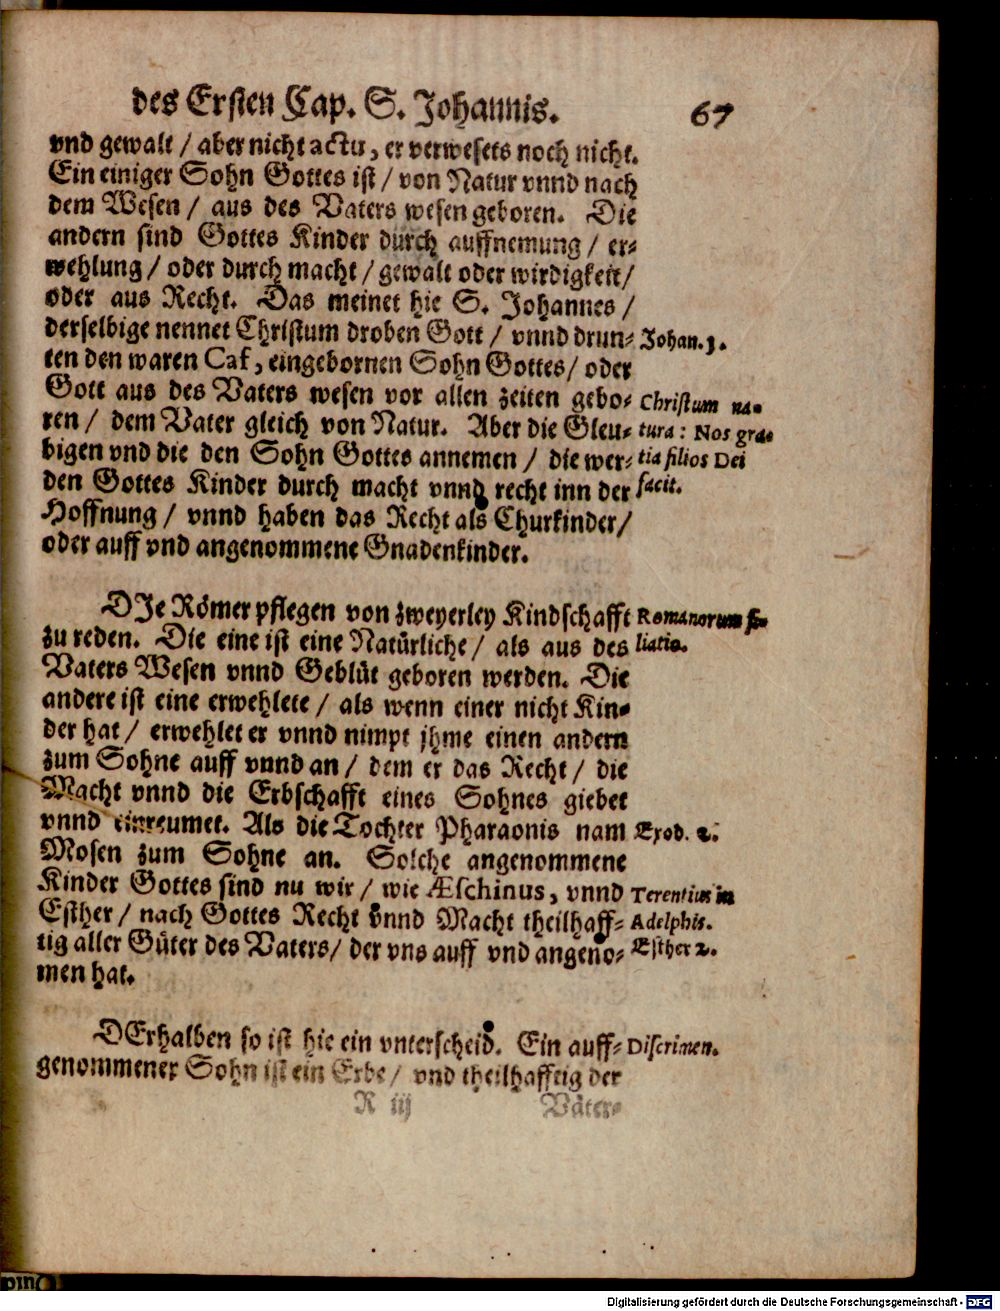 des Ersten Cap. S. Johannis. 67
vnd gewalt / aber nicht actu, er verwesets noch nicht.
Ein einiger Sohn Gottes ist / von Natur vnnd nach
dem Wesen / aus des Vaters wesen geboren. Die
andern sind Gottes Kinder durch auffnemung / er-
wehlung / oder durch macht / gewalt oder wirdigkeit /
oder aus Recht. Das meinet hie S. Johannes /
derselbige nennet Christum droben Gott / vnnd drun- Johan. 3.
ten den waren eingebornen Sohn Gottes / oder
Gott aus des Vaters wesen vor allen zeiten gebo- Christum na-
ren / dem Vater gleich von Natur. Aber die Gleu- tura: Nos gra-
bigen vnd die den Sohn Gottes annemen / die wer- tia filios Dei
den Gottes Kinder durch macht vnnd recht inn der facit.
Hoffnung / vnnd haben das Recht als Churkinder /
oder auff vnd angenommene Gnadenkinder.
DJe Römer pflegen von zweyerley Kindschafft Romanorum fi-
zu reden. Die eine ist eine Natürliche / als aus des liatio.
Vaters Wesen vnnd Geblüt geboren werden. Die
andere ist eine erwehlete / als wenn einer nicht Kin-
der hat / erwehlet er vnnd nimpt jhme einen andern
zum Sohne auff vnnd an / dem er das Recht / die
Macht vnnd die Erbschafft eines Sohnes giebet
vnnd einreumet. Als die Tochter Pharaonis nam Exod. 2.
Mosen zum Sohne an. Solche angenommene
Kinder Gottes sind nu wir / wie Æschinus, vnnd Terentius in
Esther / nach Gottes Recht vnnd Macht theilhaff- Adelphis.
tig aller Güter des Vaters / der vns auff vnd angeno- Esther 2.
men hat.
DErhalben so ist hie ein vnterscheid. Ein auff- Discrimen.
genommener Sohn ist ein Erbe / vnd theilhafftig der
R iij Väter-
Digitalisierung gefördert durch die Deutsche Forschungsgemeinschaft - DFG